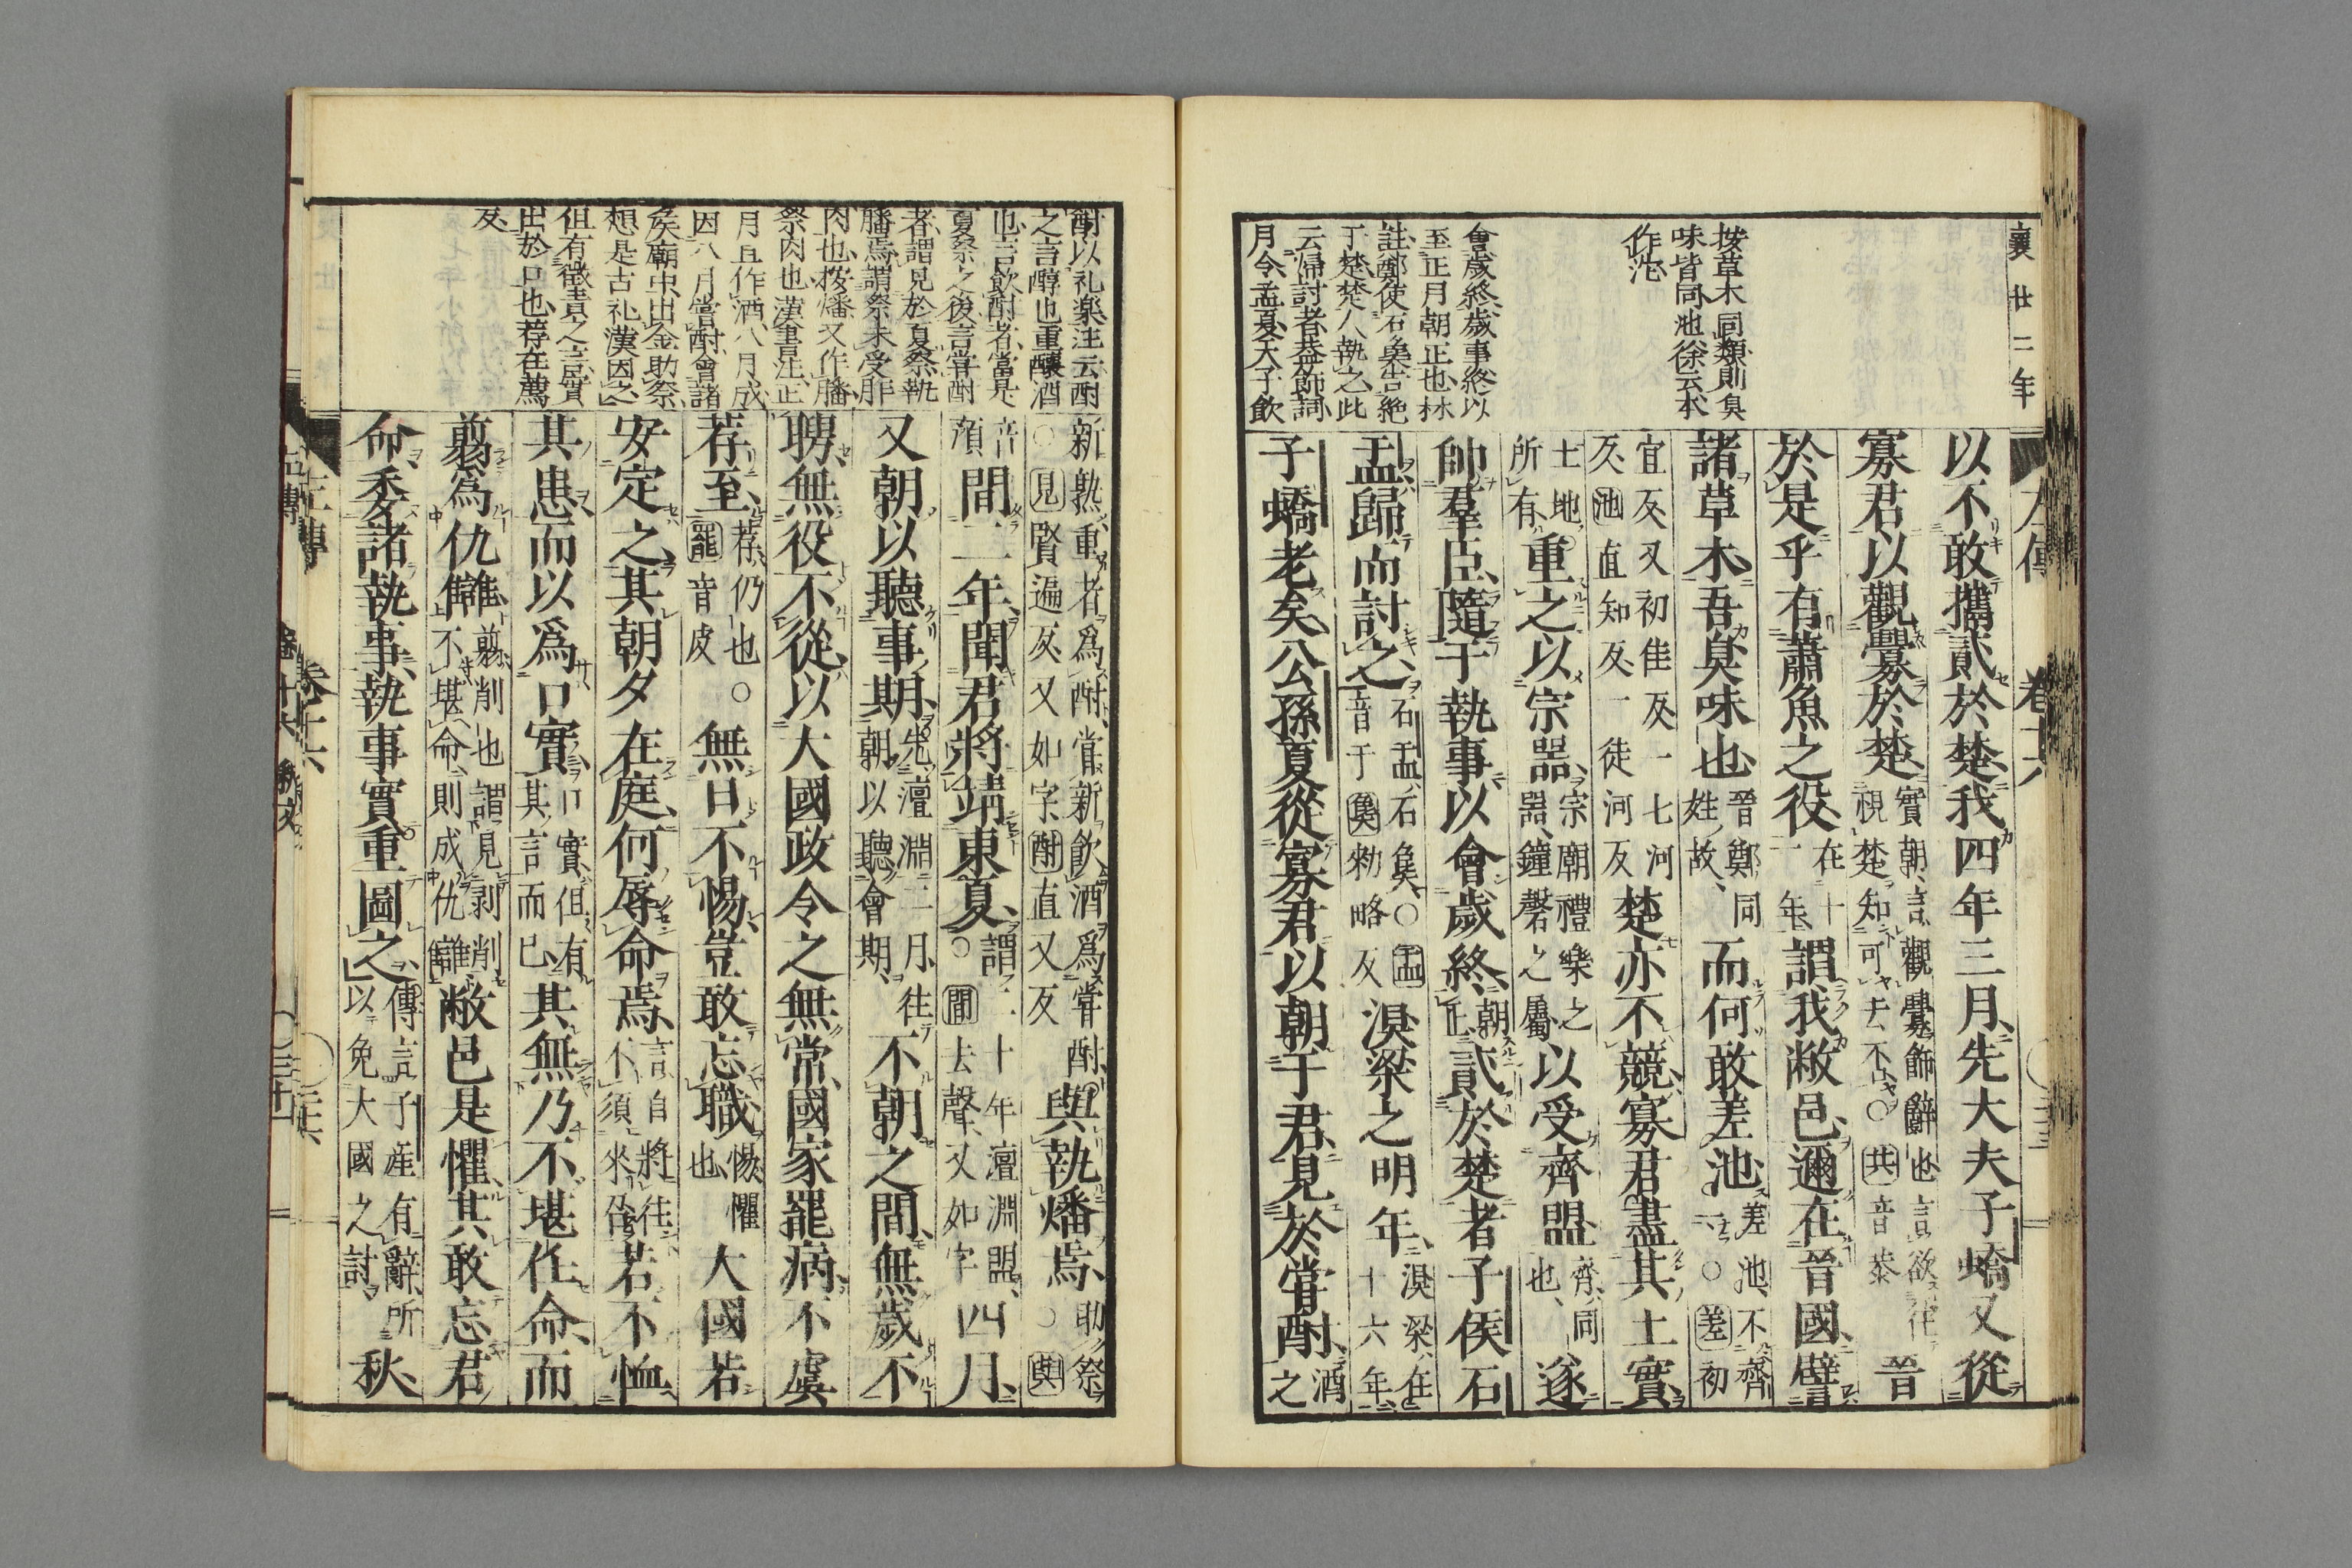 襄廿二年
左傳 卷十六
按草木同類則臭
味皆同也徐云本
作沱
會歲終歲事終以
至正月朝正也林
註鄭使石㚟告絶
于楚楚人執之此
云歸討者蓋飾詞
月令孟夏天子飲
以不敢攜貳於楚我四年三月先大夫子蟜又從
寡君以觀釁於楚實朝言觀釁飾辭也言欲往視楚知可去不○共音恭晉
於是乎有蕭魚之役在十一年謂我敝邑邇在晉國譬
諸草木吾臭味也晉鄭同姓故而何敢差池差池不齊一○差初
宜反又初佳反一七河反池直知反一徒河反楚亦不競寡君盡其土實
土地所有重之以宗器宗廟禮樂之器鐘磬之屬以受齊盟齊同也遂
帥羣臣隨于執事以會歲終朝正貳於楚者子侯石
盂歸而討之石盂石㚟○盂音于㚟勑略反湨梁之明年湨梁在十六年
子蟜老矣公孫夏從寡君以朝于君見於嘗酎酒之
酎以礼楽注云酎
之言醇也重釀酒
也言飲酎者當是
夏祭之後言嘗酎
者謂見於夏祭執
膰焉謂祭末受胙
肉也按燔又作膰
祭肉也漢書注正
月旦作酒八月成
因八月嘗酎會諸
矦廟中出金助祭
想是古礼漢因之
但有徵責之言實
出於口也荐在薦
反
新熟重者爲酎嘗新飲酒爲嘗酎○見賢遍反又如字酎直又反與執燔焉助祭○與
音預間二年聞君將靖東夏謂二十年澶淵盟○間去聲又如字四月
又朝以聽事期先澶淵二月往朝以聽會期不朝之間無歲不
聘無役不從以大國政令之無常國家罷病不虞
荐至荐仍也○罷音皮無日不惕豈敢忘職惕懼也大國若
安定之其朝夕在庭何辱命焉言自將往不須來召若不恤
其患而以爲口實口實但有其言而已其無乃不堪任命而
翦爲仇讎翦削也謂見剥削不堪命則成仇讎敝邑是懼其敢忘君
命委諸執事執事實重圖之傳言子産有辭所以免大國之討秋
卷十六